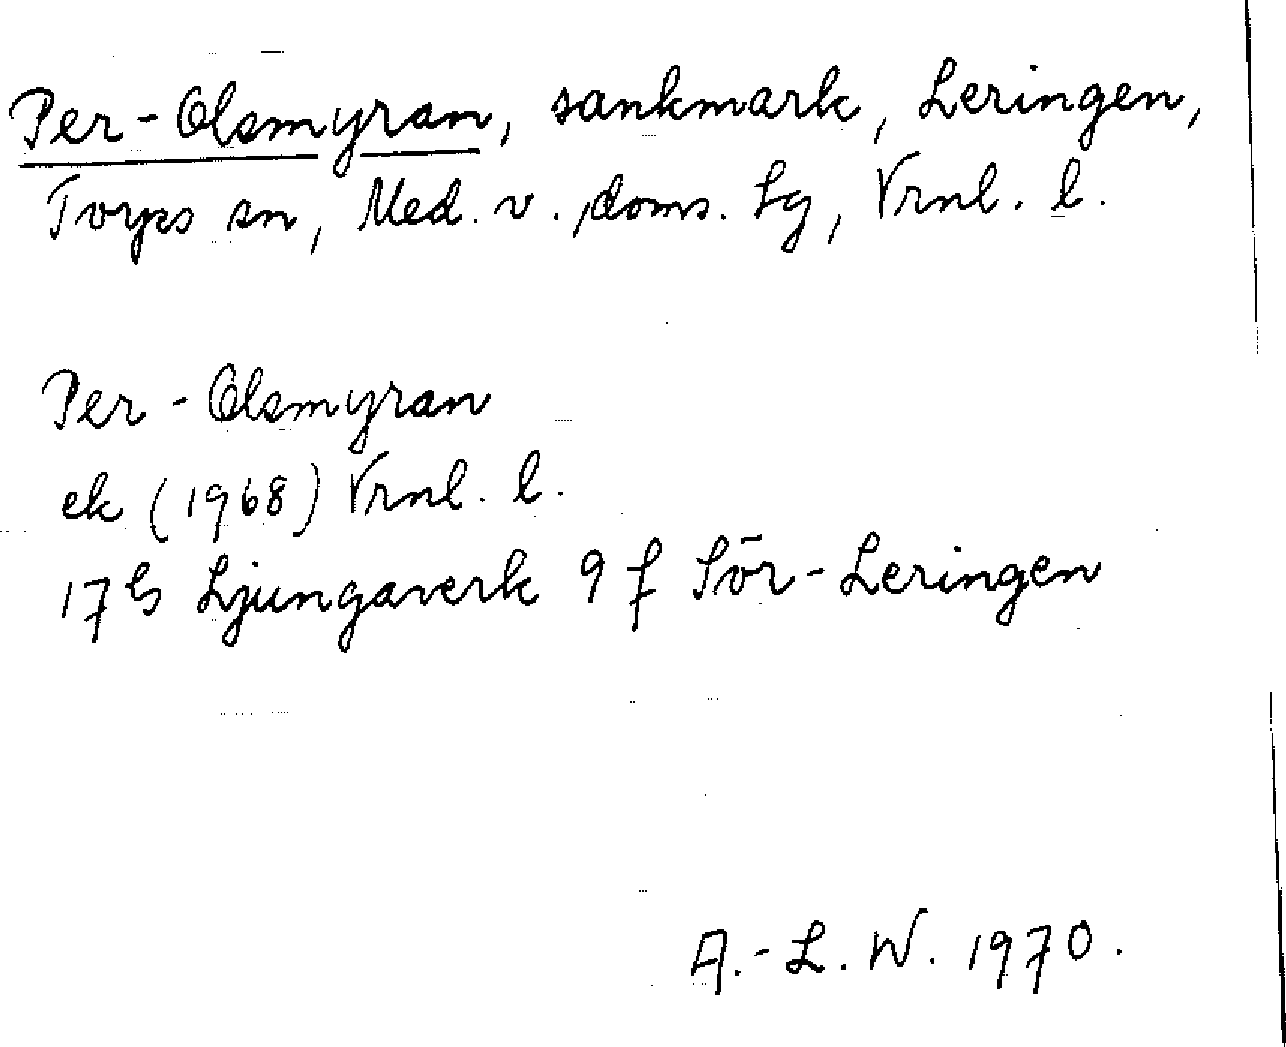 Per-Olsmyran, sankmark, Leringen,
Torps sn, Med. v. doms. Lg, Vrnl. l.
Per-Olsmyran
ek (1968) Vrnl. l.
17 G Ljungaverk 9 f Sör-Leringen
A.-L. W. 1970.